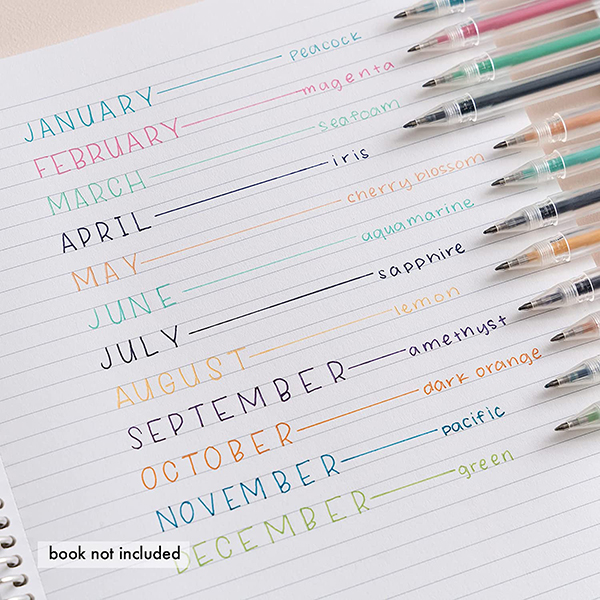 JANUARY peacock
FEBRUARY magenta
MARCH seafoam
APRIL iris
MAY cherry blossom
JUNE aquamarine
JULY sapphire
AUGUST lemon
SEPTEMBER amethyst
OCTOBER dark orange
NOVEMBER pacific
DECEMBER green
book not included